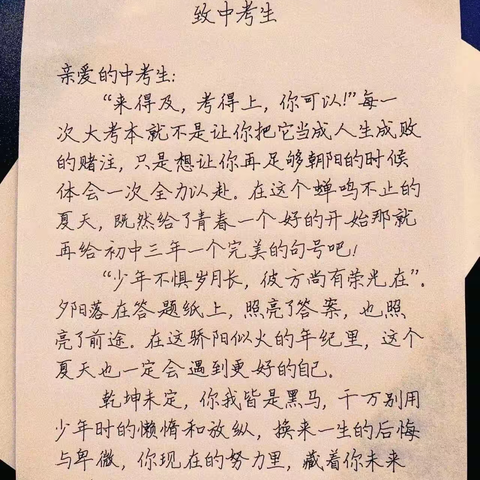 致中考生
亲爱的中考生:
“来得及，考得上，你可以!”每一
次大考本就不是让你把它当成人生成败
的赌注，只是想让你再足够朝阳的时候
体会一次全力以赴。在这个蝉鸣不止的
夏天，既然给了青春一个好的开始那就
再给初中三年一个完美的句号吧!
“少年不惧岁月长，彼方尚有荣光在”。
夕阳落在答题纸上，照亮了答案，也照
亮了前途。在这骄阳似火的年纪里，这个
夏天也一定会遇到更好的自己。
乾坤未定，你我皆是黑马，千万别用
少年时的懒惰和放纵，换来一生的后悔
与卑微，你现在的努力里，藏着你未来